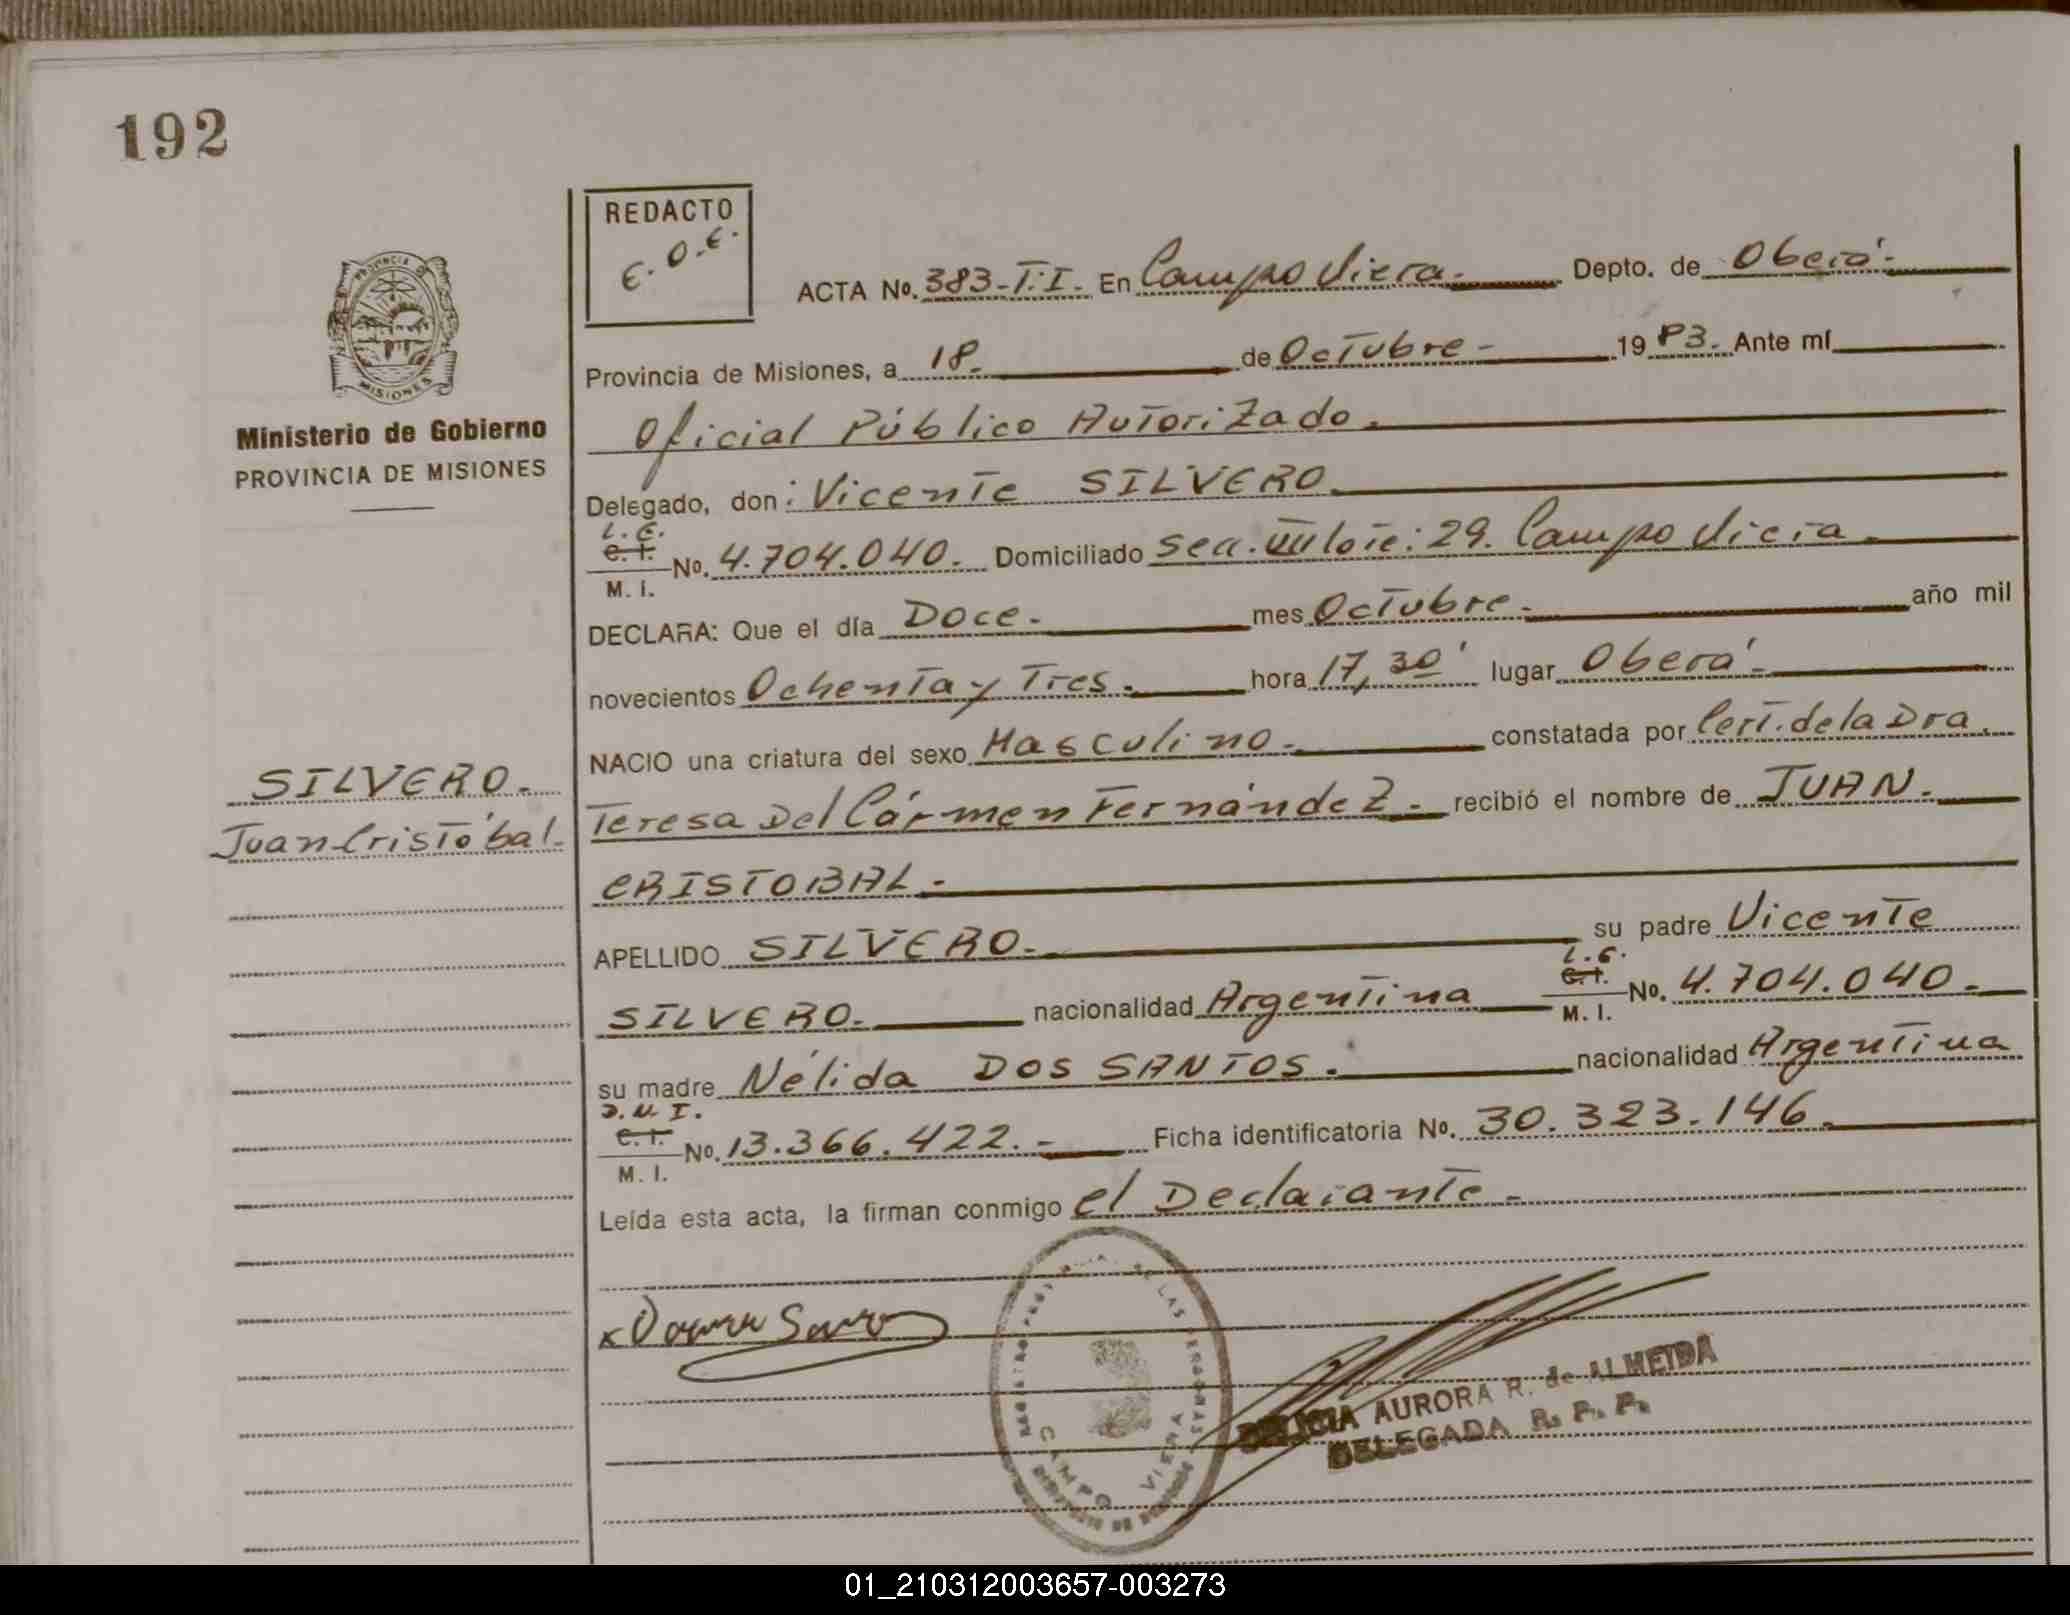 192
PROVINCIA DE
MISIONES
Ministerio de Gobierno
PROVINCIA DE MISIONES
SILVERO.
Juan Cristóbal.
REDACTO
E.O.E.
ACTA No. 383-T.I. En Campo Viera. Depto. de Oberá.
Provincia de Misiones, a 18. de Octubre 1983. Ante mí
Oficial Público Autorizado.
Delegado, don: Vicente SILVERO.
L.E.
C.I.
M. I. No. 4.704.040. Domiciliado Secc. VII lote: 29. Campo Viera.
DECLARA: Que el día Doce. mes Octubre. año mil
novecientos Ochenta y Tres. hora 17,30' lugar Oberá.
NACIO una criatura del sexo Masculino. constatada por Cert. de la Dra.
Teresa Del Cármen Fernández. recibió el nombre de JUAN.
CRISTOBAL.
APELLIDO SILVERO. su padre Vicente
SILVERO. nacionalidad Argentina L.E. C.I. M. I. No. 4.704.040.
su madre Nélida DOS SANTOS. nacionalidad Argentina
D.N.I.
C.I.
M. I. No. 13.366.422. Ficha identificatoria No. 30.323.146.
Leída esta acta, la firman conmigo el Declarante.
DE LAS PERSONAS
CAMPO VIERA
DELICIA AURORA R. de ALMEIDA
DELEGADA R. P. P.
01_210312003657-003273